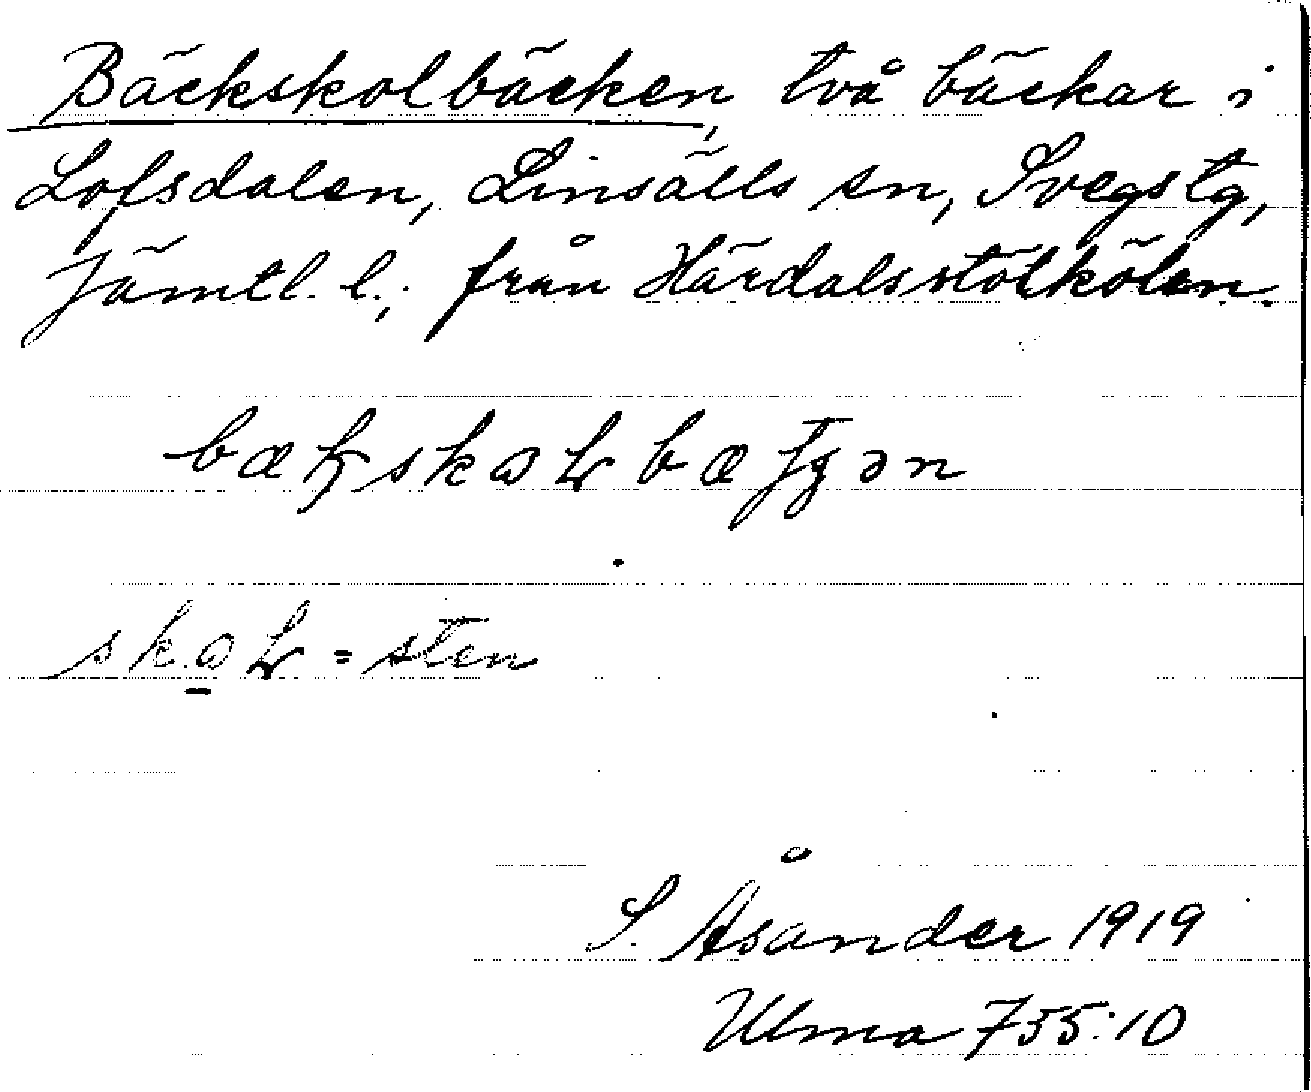 Bäckskolbäcken, två bäckar i
Lofsdalen, Linsälls sn, Svegs tg,
Jämtl. l.; från Härdalsstötkölen.
S. Åsander 1919
Ulma 755:10